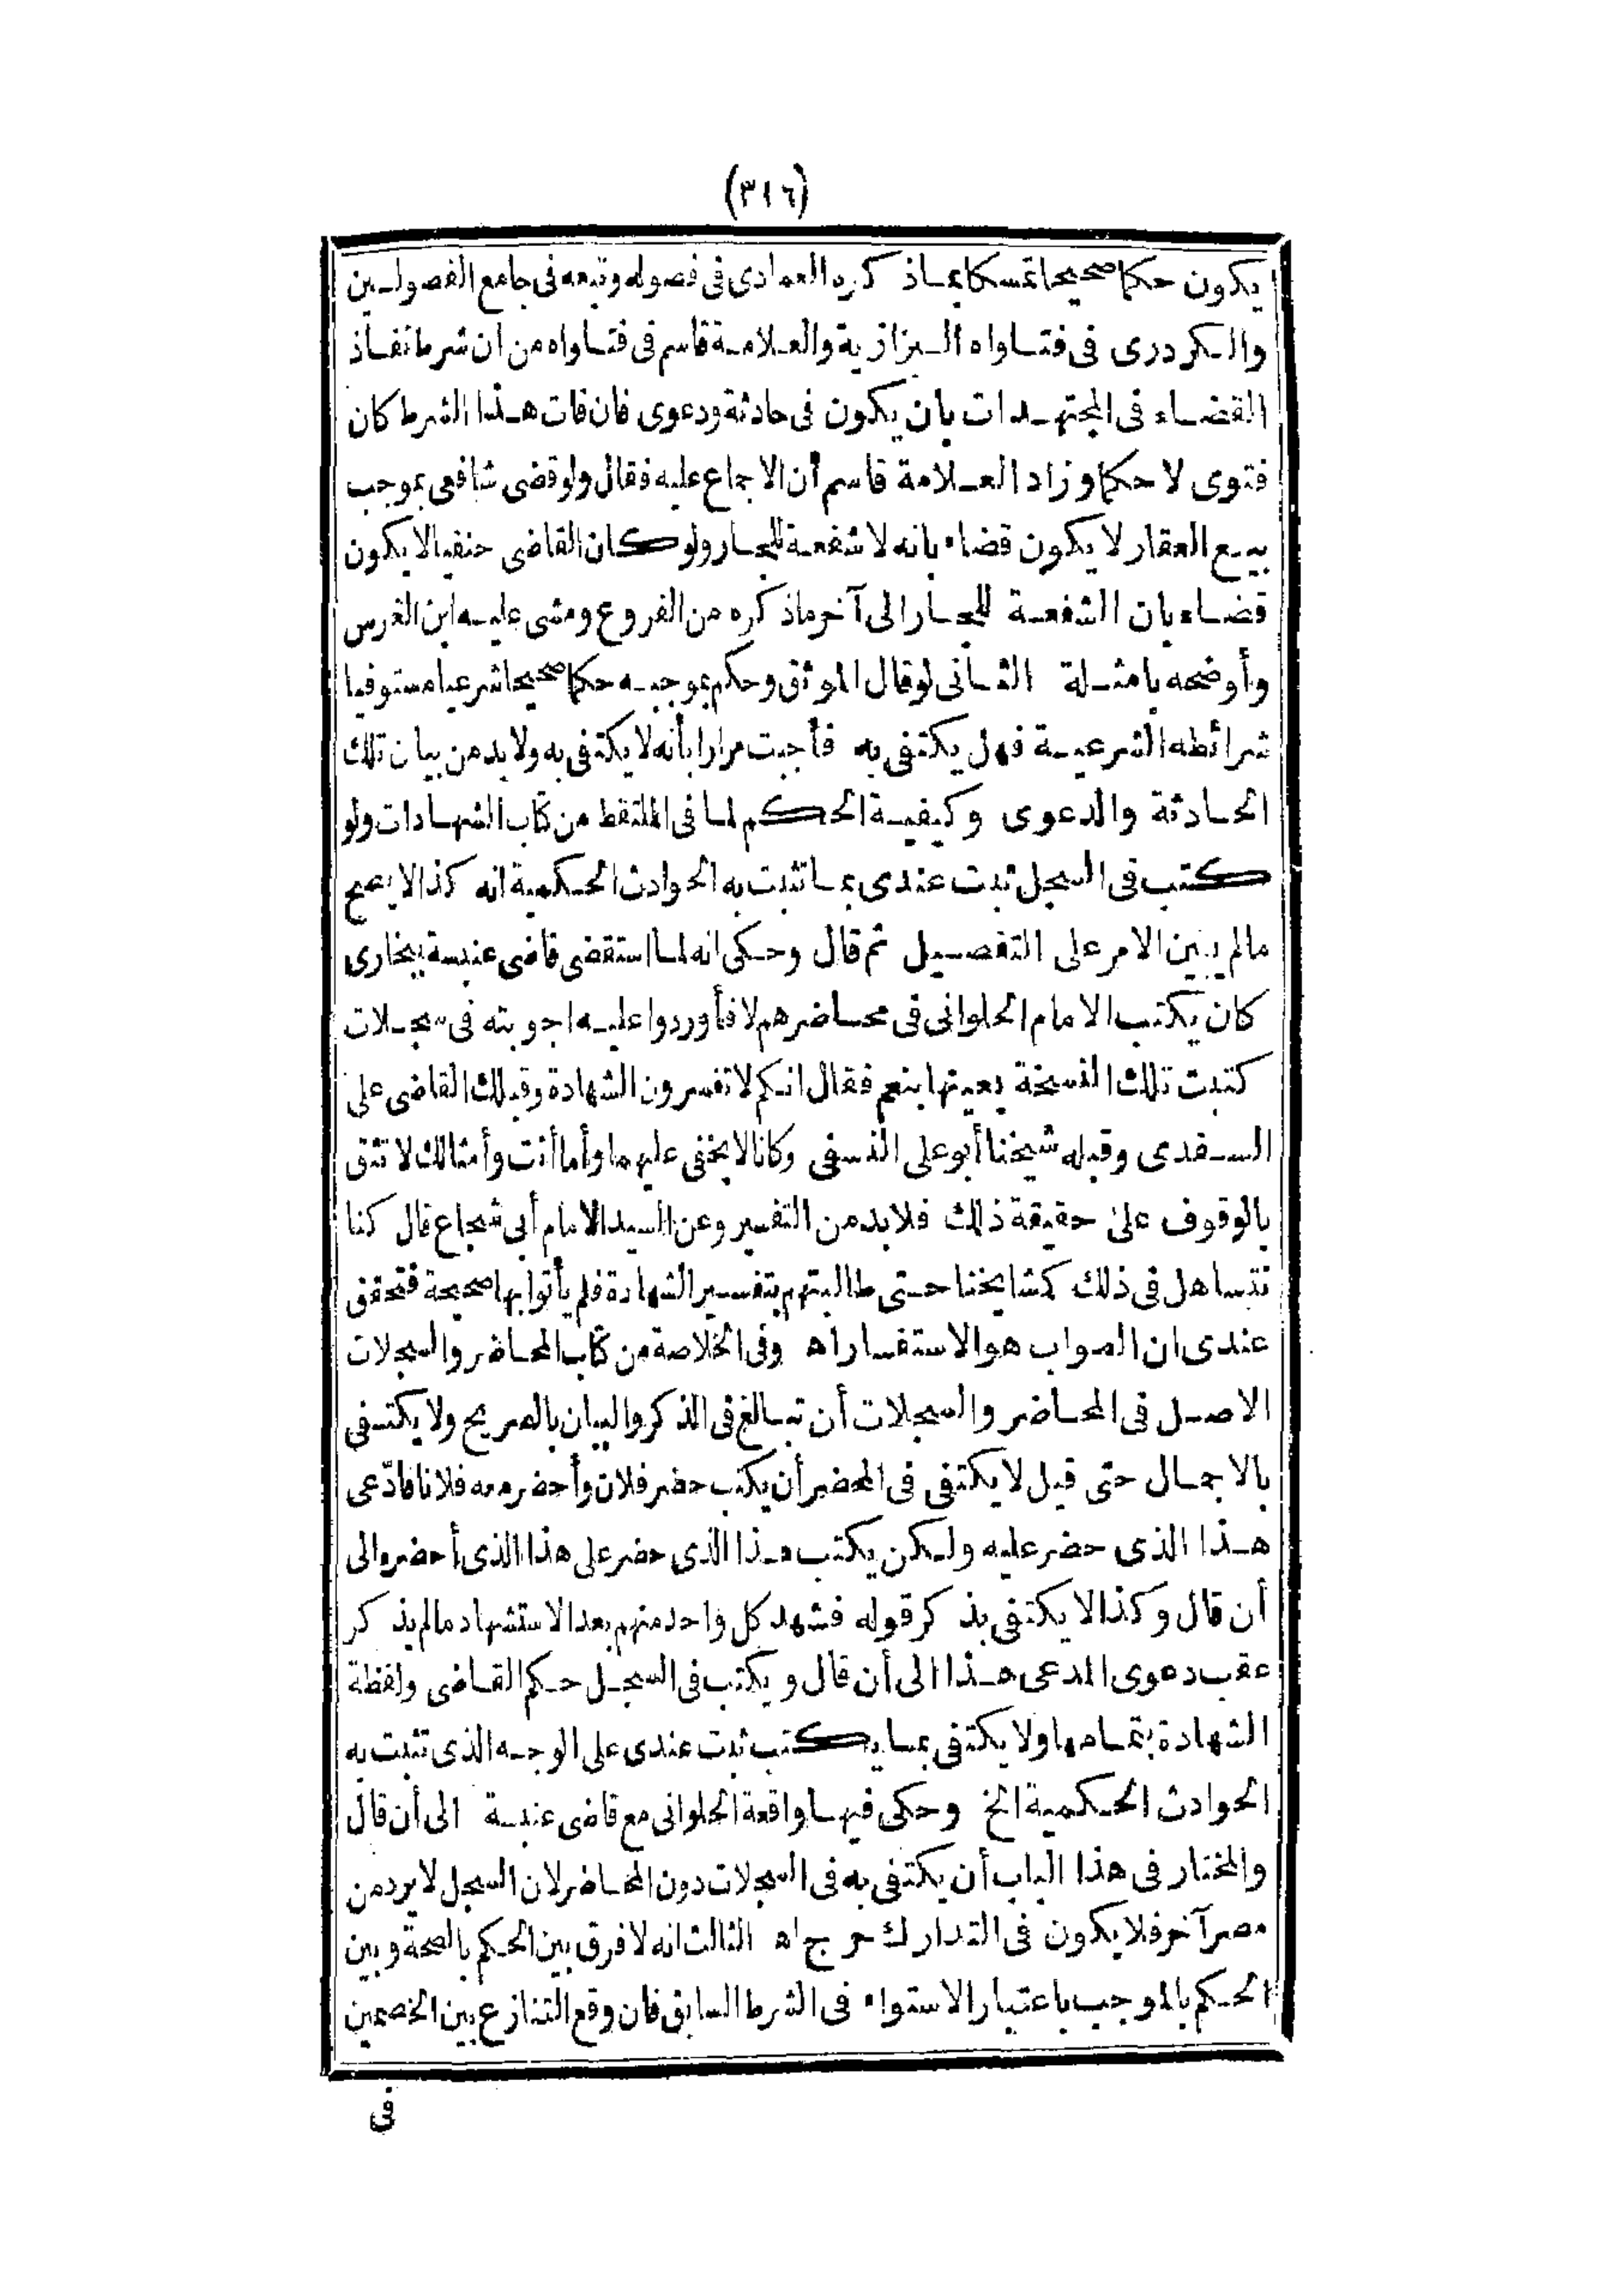 (٣١٦)
يكون حكما صحيحا تمسكا بما ذكره العمادى فى فصوله وتبعه فى جامع الفصولين
والكردرى فى فتاواه البزازية والعلامة قاسم فى فتاواه من ان شرط نفاذ
القضاء فى المجتهدات بان يكون فى حادثة ودعوى فان فات هذا الشرط كان
فتوى لا حكما وزاد العلامة قاسم أن الاجماع عليه فقال ولو قضى شافعى بموجب
بيع العقار لا يكون قضاء بانه لا شفعة للجار ولو كان القاضى حنفيا لا يكون
قضاء بان الشفعة للجار الى آخر ماذكره من الفروع ومشى عليه ابن الغرس
وأوضحه بامثلة الثانى لو قال الموثق وحكم بموجبه حكما صحيحا شرعيا مستوفيا
شرائطه الشرعية فهل يكتفى به فأجبت مرارا بأنه لا يكتفى به ولا بد من بيان تلك
الحادثة والدعوى وكيفية الحكم لما فى الملتقط من كتاب الشهادات ولو
كتب فى السجل ثبت عندى بما تثبت به الحوادث الحكمية انه كذا لا يصح
مالم يبين الامر على التفصيل ثم قال وحكى انه لما استقضى قاضى عنبسة ببخارى
كان يكتب الامام الحلوانى فى محاضرهم لا فأوردوا عليه اجوبته فى سجلات
كتبت تلك النسخة بعينها بنعم فقال انكم لا تفسرون الشهادة وقبلك القاضى على
السغدى وقبله شيخنا أبو على النسفى وكانا لا يخفى عليهما وأما أنت وأمثالك لا تثق
بالوقوف على حقيقة ذلك فلا بد من التفسير وعن السيد الامام أبى شجاع قال كنا
نتساهل فى ذلك كمشايخنا حتى طالبتهم بتفسير الشهادة فلم يأتوا بها صحيحة فتحقق
عندى ان الصواب هو الاستفسار اه وفى الخلاصة من كتاب المحاضر والسجلات
الاصل فى المحاضر والسجلات أن تبالغ فى الذكر والبيان بالصريح ولا يكتفى
بالاجمال حتى قيل لا يكتفى فى المحضر أن يكتب حضر فلان وأحضر معه فلانا فادّعى
هذا الذى حضر عليه ولكن يكتب هذا الذى حضر على هذا الذى أحضر والى
أن قال وكذا لا يكتفى بذكر قوله فشهد كل واحد منهم بعد الاستشهاد مالم يذكر
عقب دعوى المدعى هذا الى أن قال ويكتب فى السجل حكم القاضى ولفظة
الشهادة بتمامها ولا يكتفى بما يكتب ثبت عندى على الوجه الذى تثبت به
الحوادث الحكمية الخ وحكى فيها واقعة الحلوانى مع قاضى عنبسة الى أن قال
والمختار فى هذا الباب أن يكتفى به فى السجلات دون المحاضر لان السجل لا يرد من
مصر آخر فلا يكون فى التدارك حرج اه الثالث انه لا فرق بين الحكم بالصحة وبين
الحكم بالموجب باعتبار الاستواء فى الشرط السابق فان وقع التنازع بين الخصمين
فى